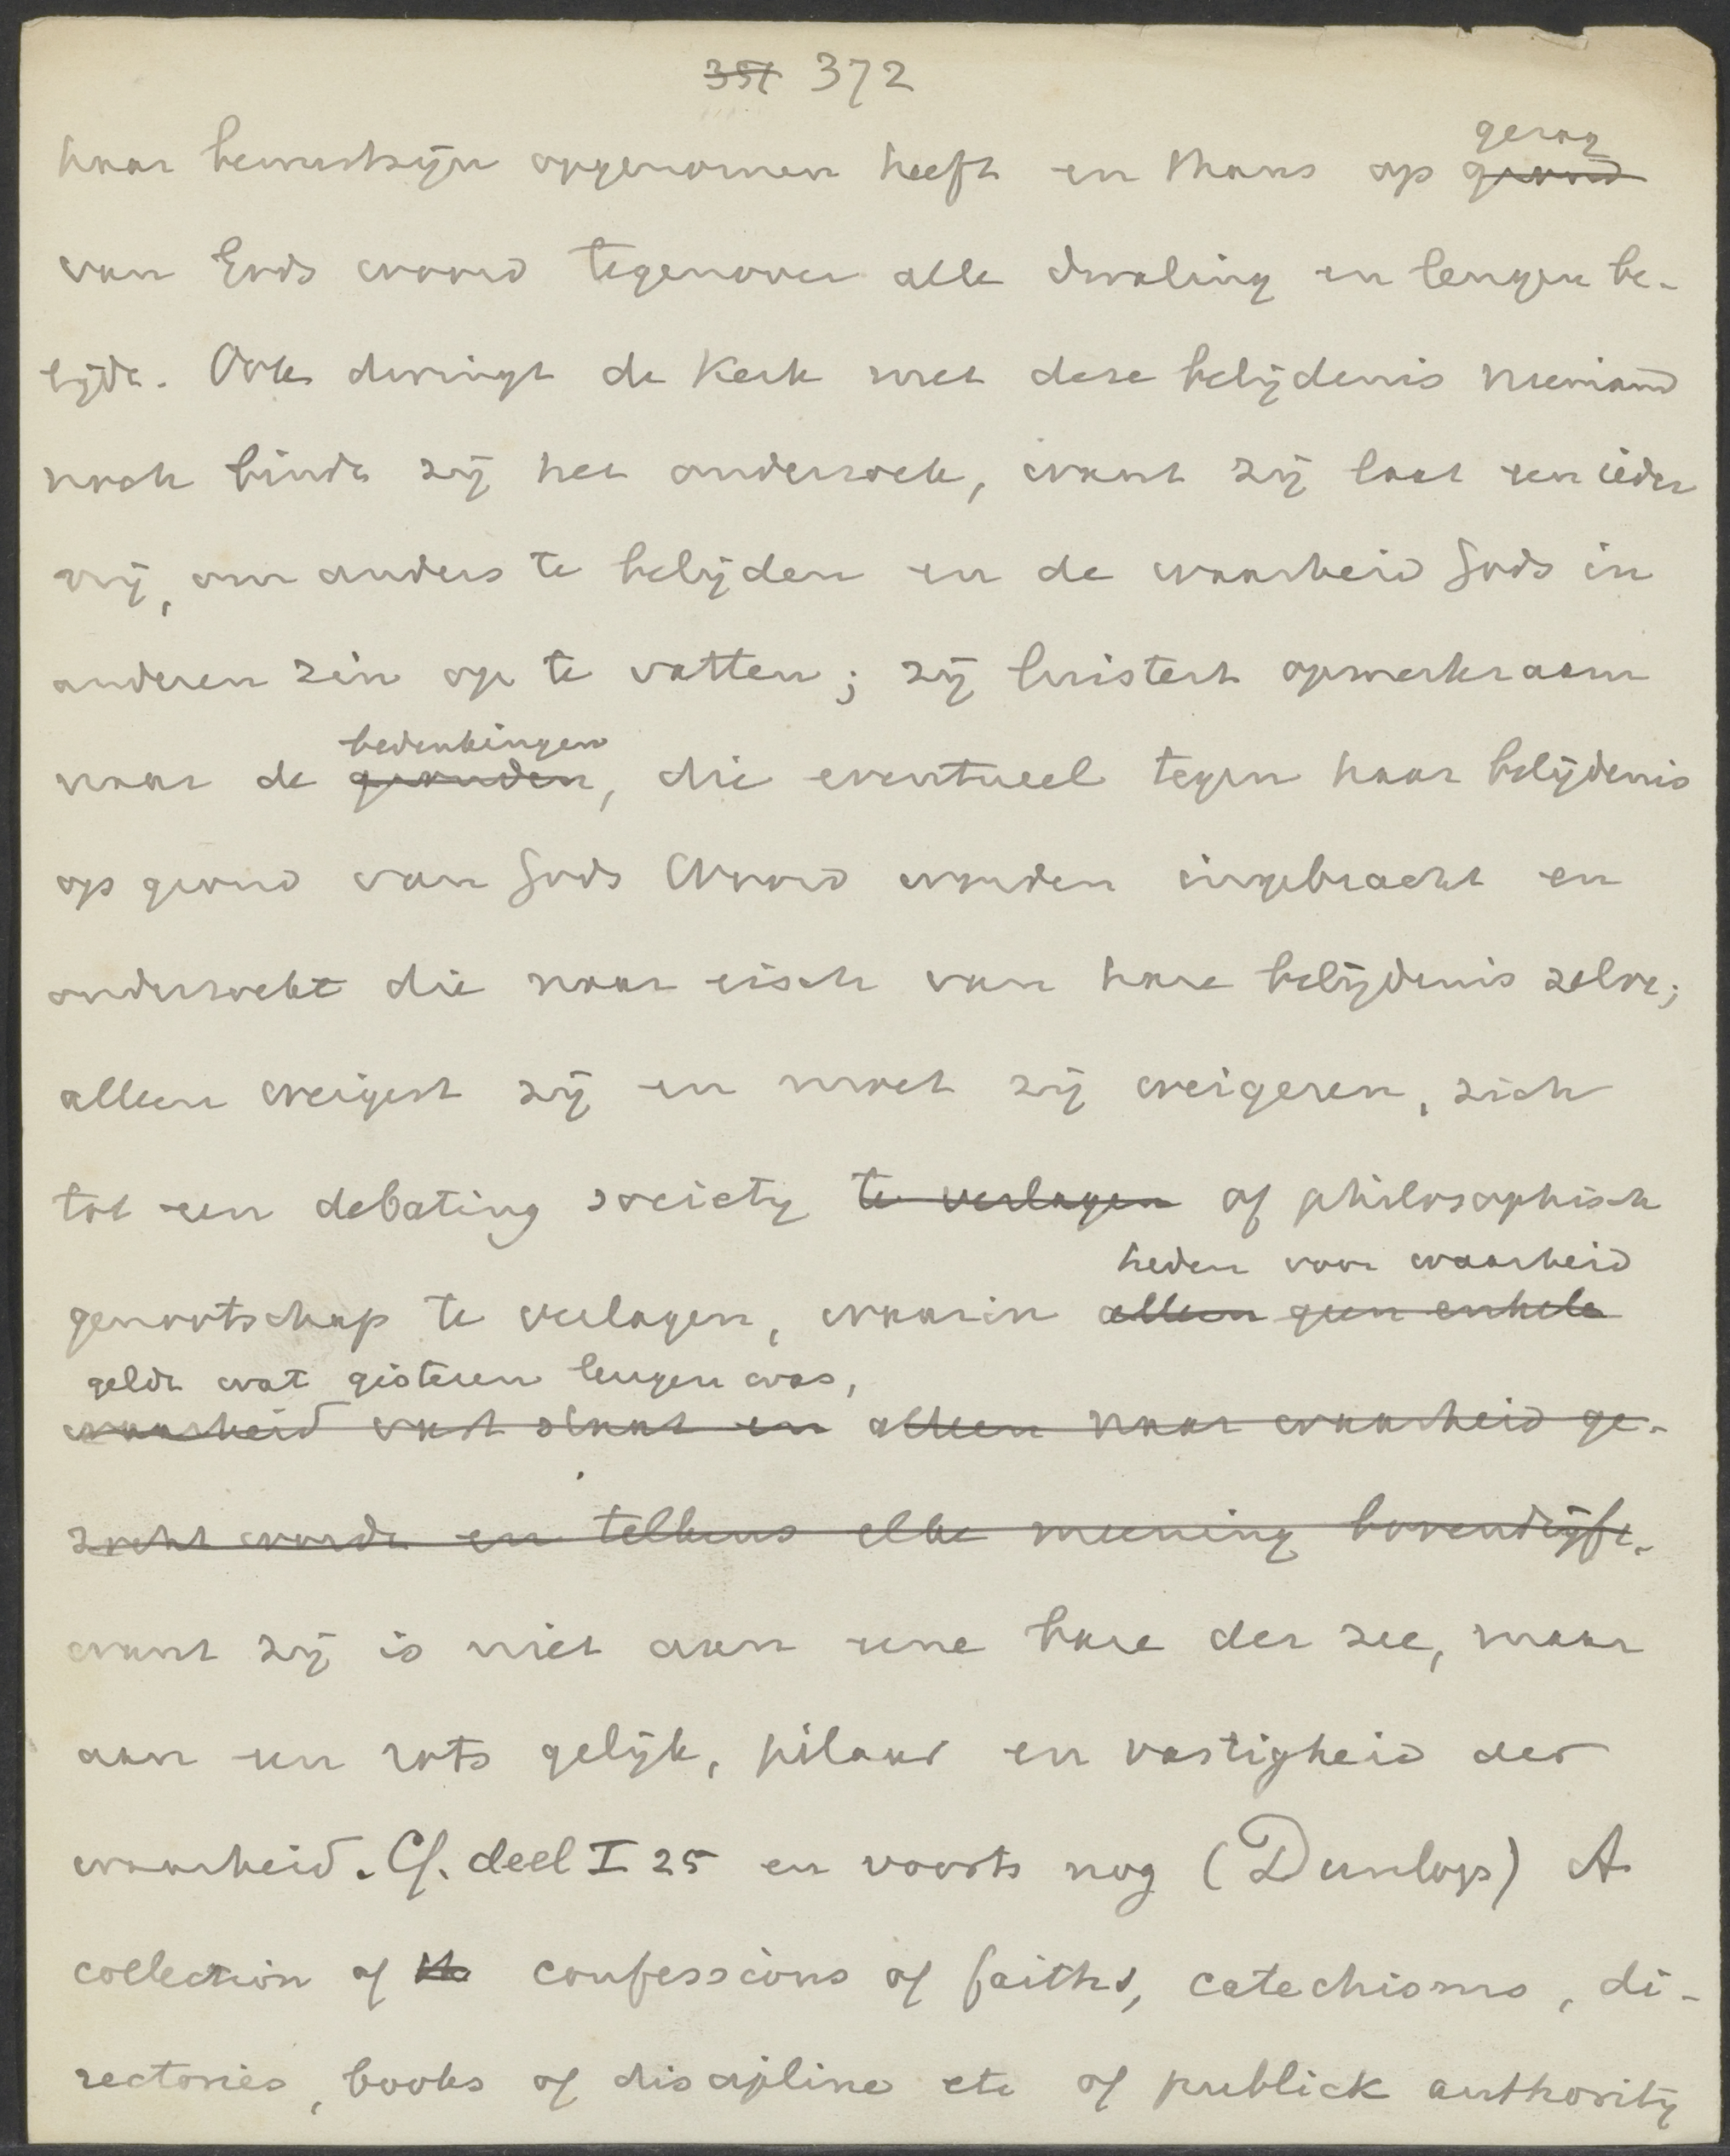 351 372
haar bewustzijn opgenomen heeft en thans op grond
gezag
van Gods woord tegenover alle dwaling en leugen be-
lijdt. Ook dwingt de Kerk met deze belijdenis niemand
noch bindt zij het onderzoek, want zij laat een ieder
vrij, om anders te belijden en de waarheid Gods in
anderen zin op te vatten; zij luistert opmerkzaam
bedenkingen
naar de gronden, die eventueel tegen haar belijdenis
op grond van Gods Woord worden ingebracht en
onderzoekt die naar eisch van hare belijdenis zelve;
alleen weigert zij en moet zij weigeren, zich
tot een debating society te verlagen of philosophisch
heden voor waarheid
genootschap te verlagen, waarin alleen geen enkele
geldt wat gisteren leugen was,
waarheid vast staat en alleen naar waarheid ge-
zocht wordt en telkens elke meening bovendrijft.
want zij is niet aan eene bare der zee, maar
aan een rots gelijk, pilaar en vastigheid der
waarheid. Cf. deel I 25 en voorts nog (Dunlop) A
collection of the confessions of faiths, catechisms, di-
rectories, books of discipline etc of publick authority